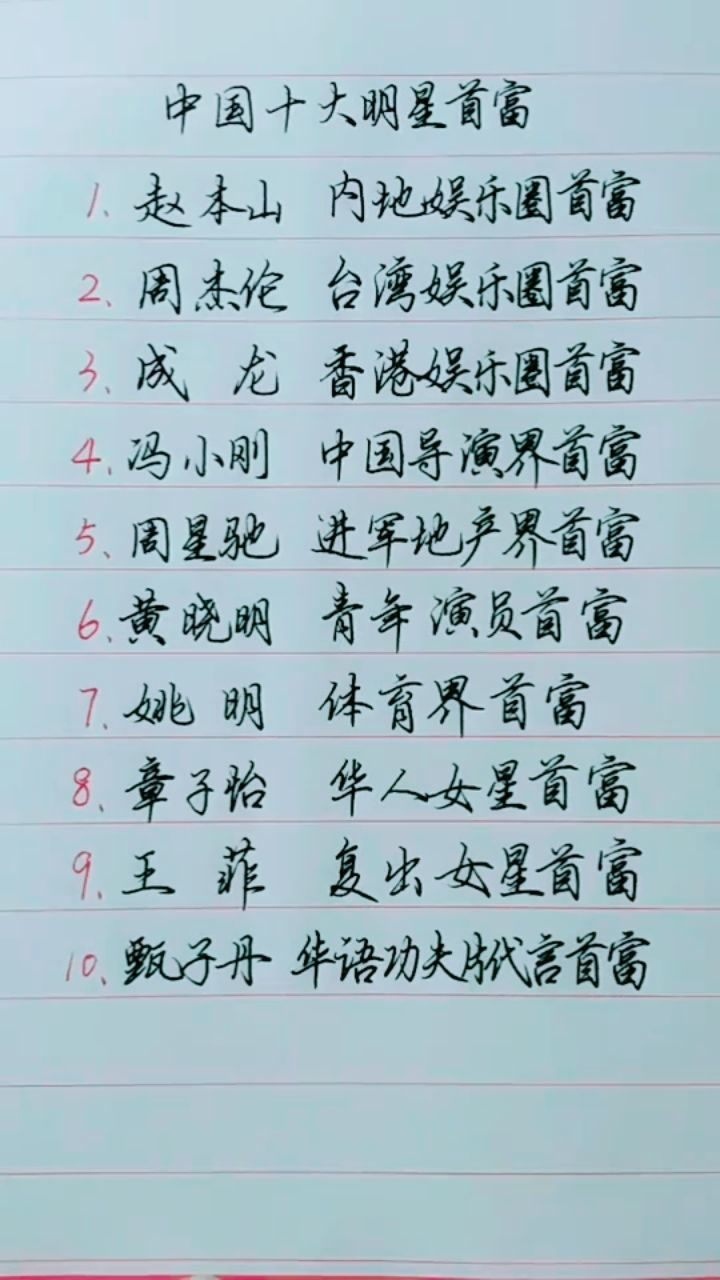 中国十大明星首富
1、赵本山 内地娱乐圈首富
2、周杰伦 台湾娱乐圈首富
3、成龙 香港娱乐圈首富
4、冯小刚 中国导演界首富
5、周星驰 进军地产界首富
6、黄晓明 青年演员首富
7、姚明 体育界首富
8、章子怡 华人女星首富
9、王菲 复出女星首富
10、甄子丹 华语功夫片代言首富